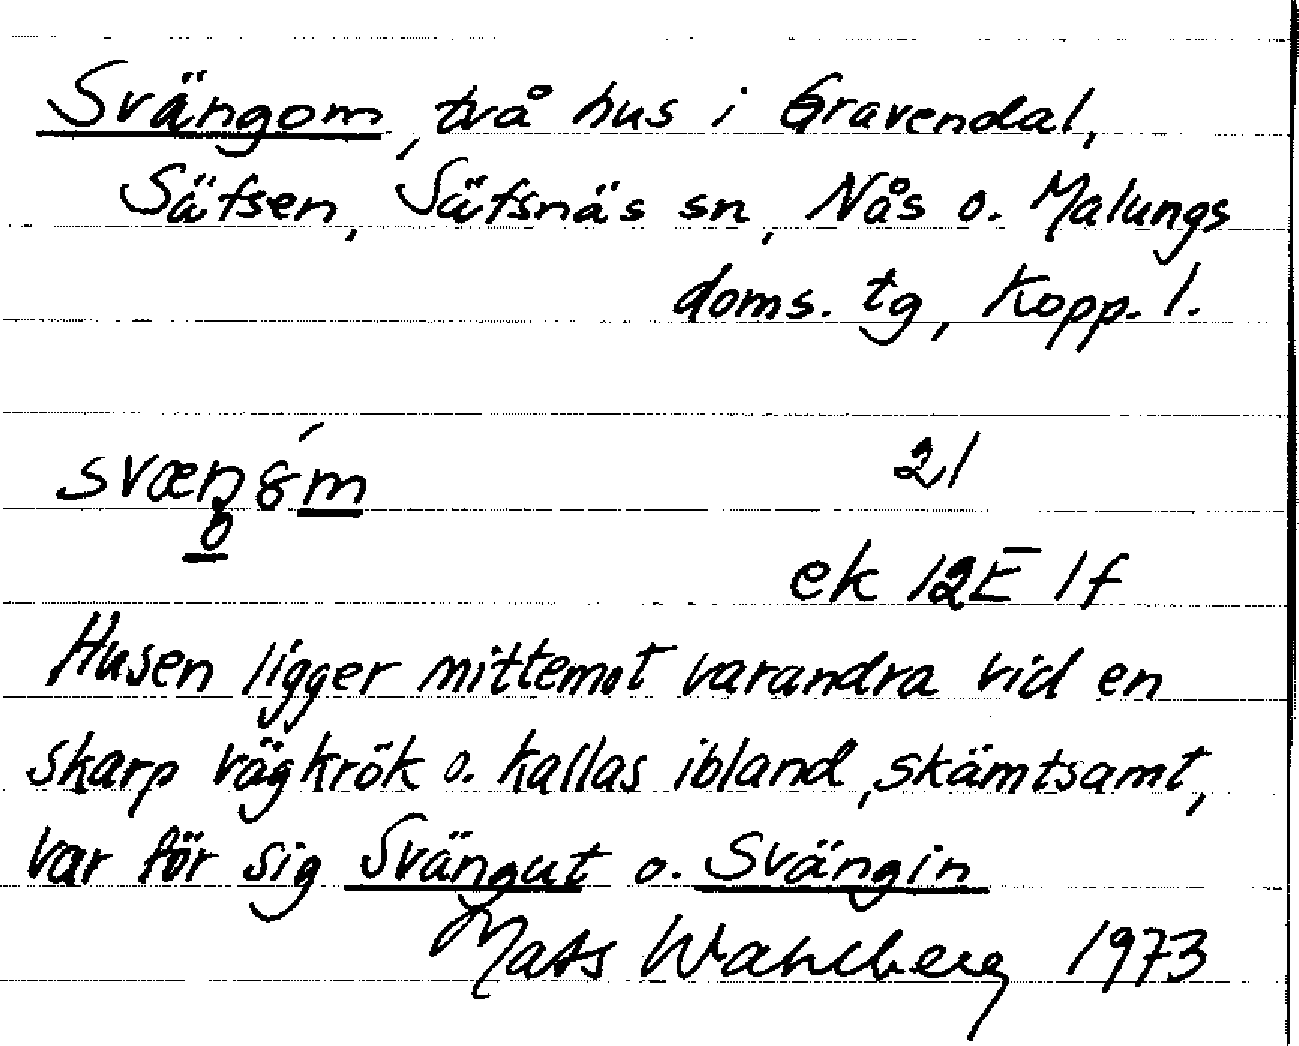 Svängom, två hus i Gravendal,
Säfsen, Säfsnäs sn, Nås o. Malungs
doms. tg, Kopp. l.
21
ek 12E 1f
Husen ligger mittemot varandra vid en
skarp vägkrök o. kallas ibland, skämtsamt,
var för sig Svängut o. Svängin
Mats Wahlberg 1973